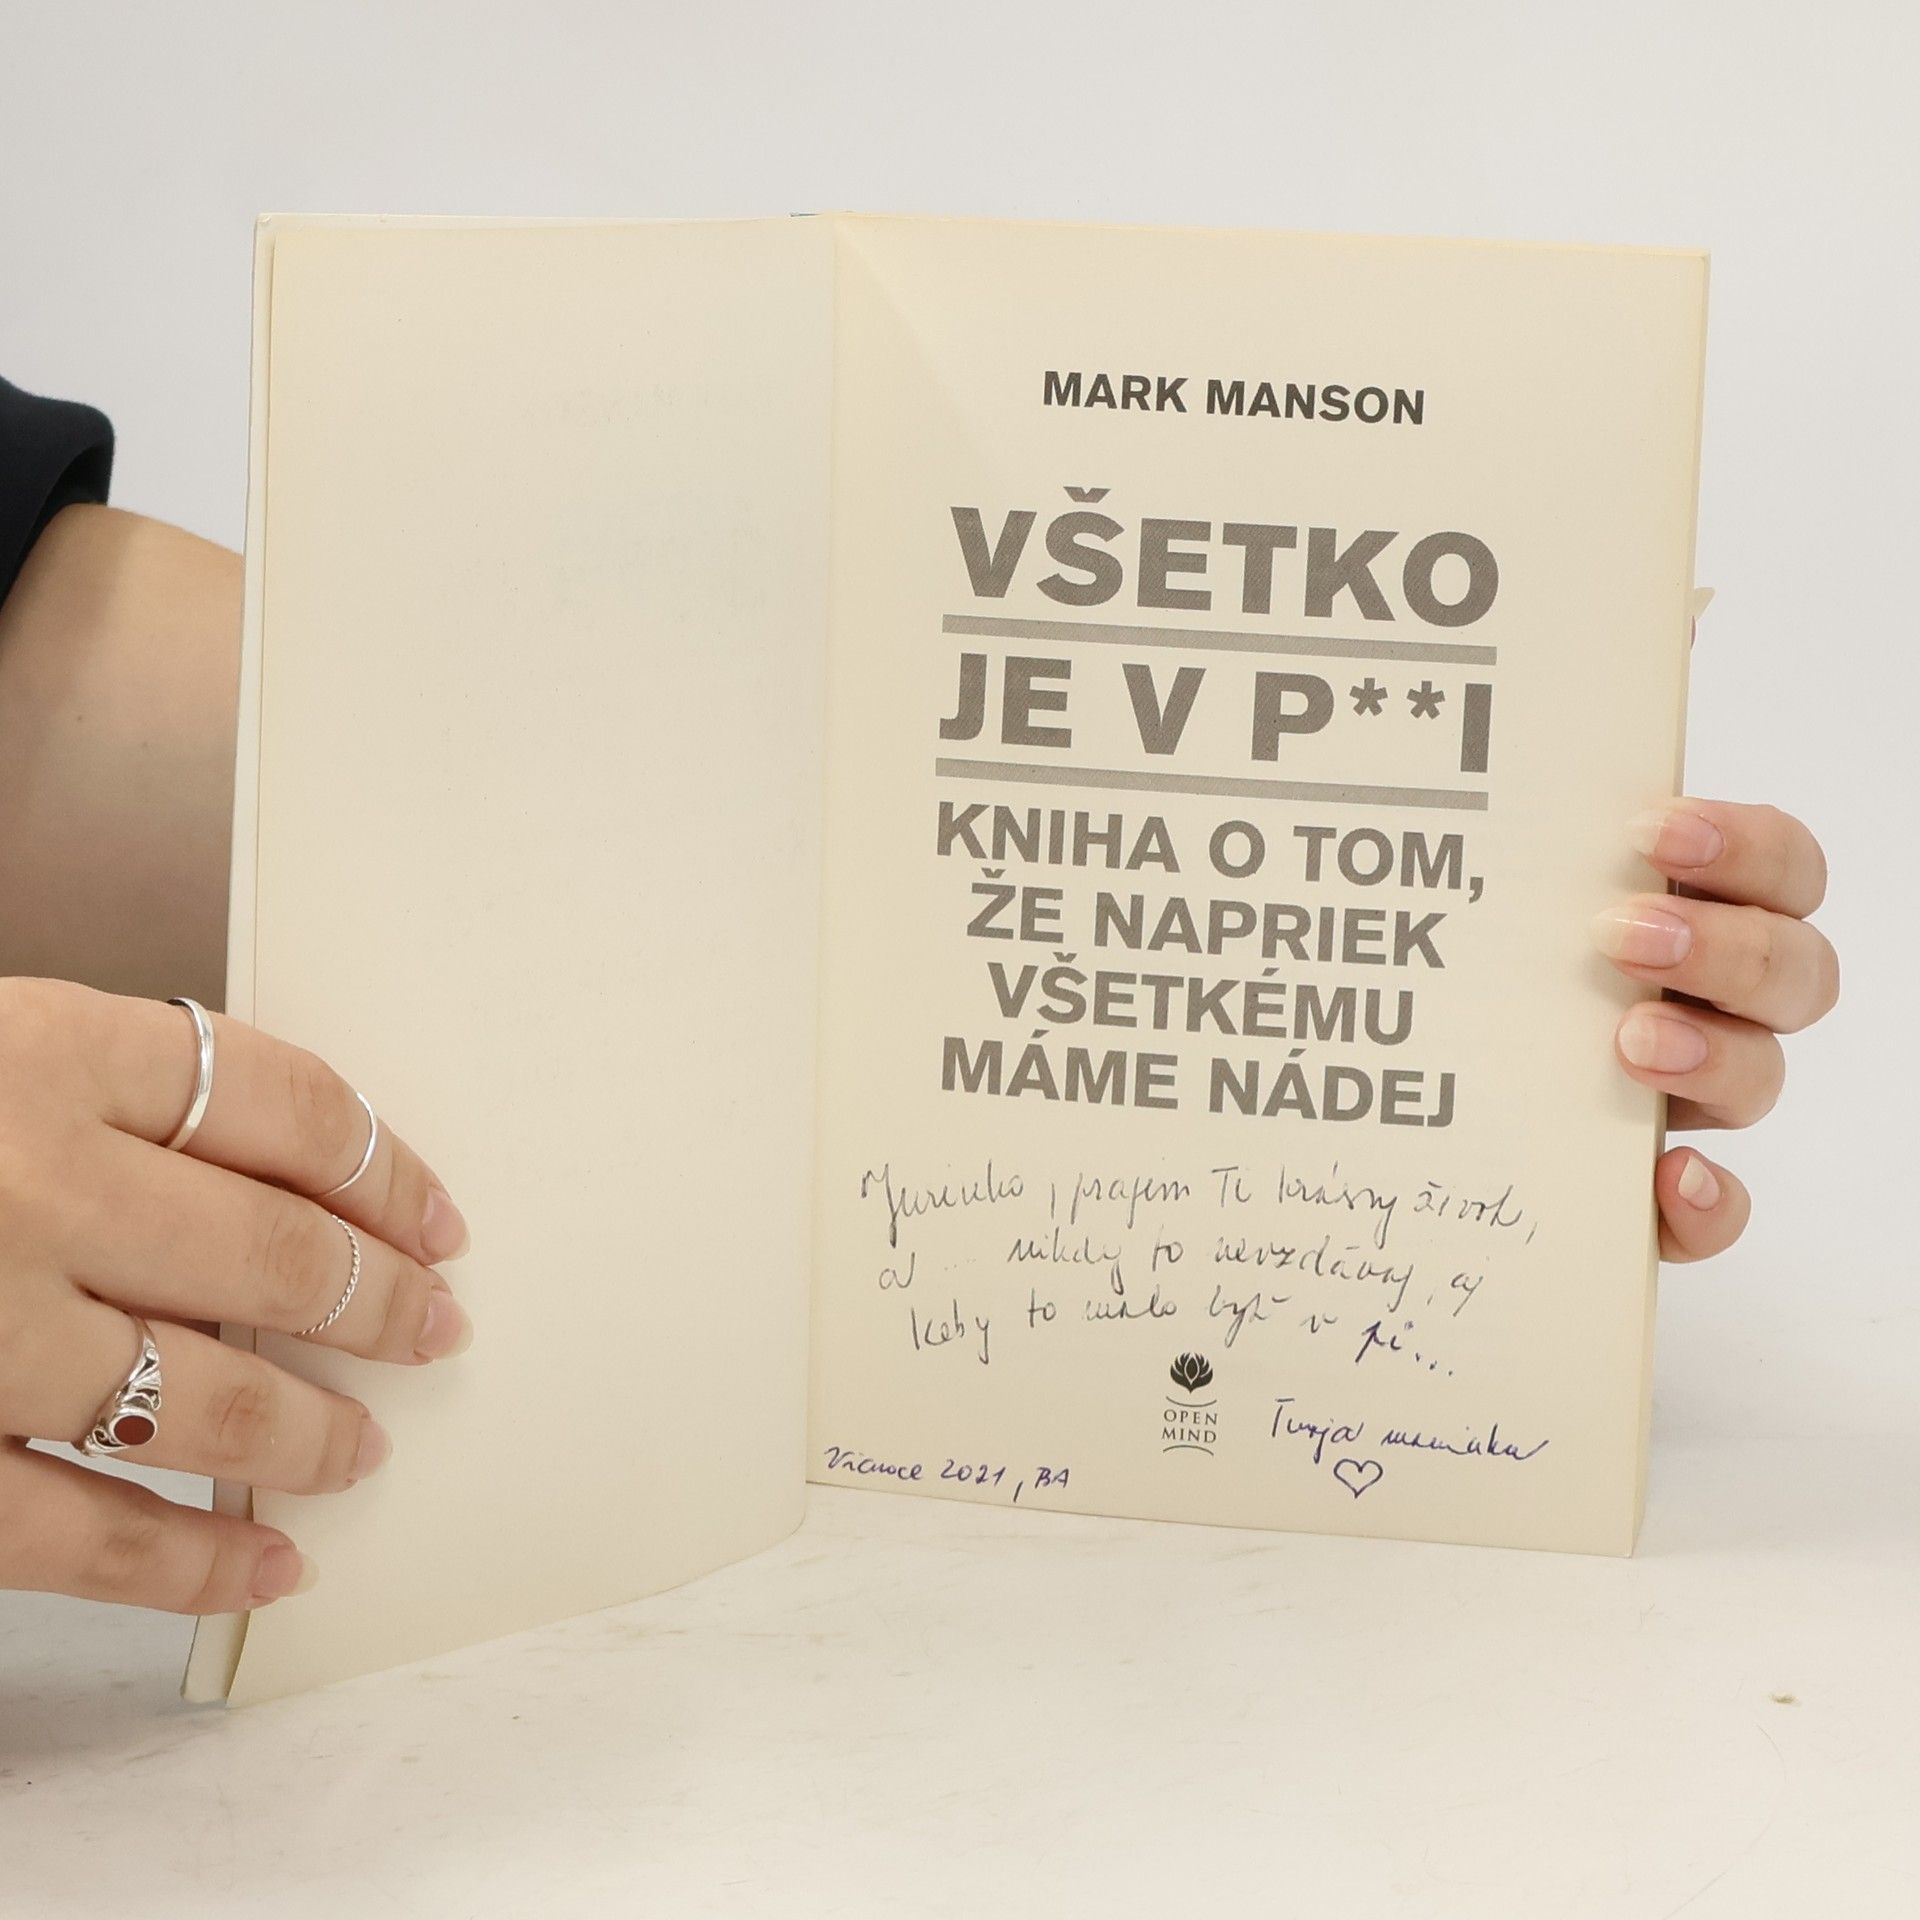 MARK MANSON
VŠETKO
JE V P**I
KNIHA O TOM,
ŽE NAPRIEK
VŠETKÉMU
MÁME NÁDEJ
Jurinko, prajem Ti krásny život,
a ... nikdy to nevzdávaj, aj
keby to malo byť v pi...
OPEN
MIND
Tvoja maminka
Vianoce 2021, BA